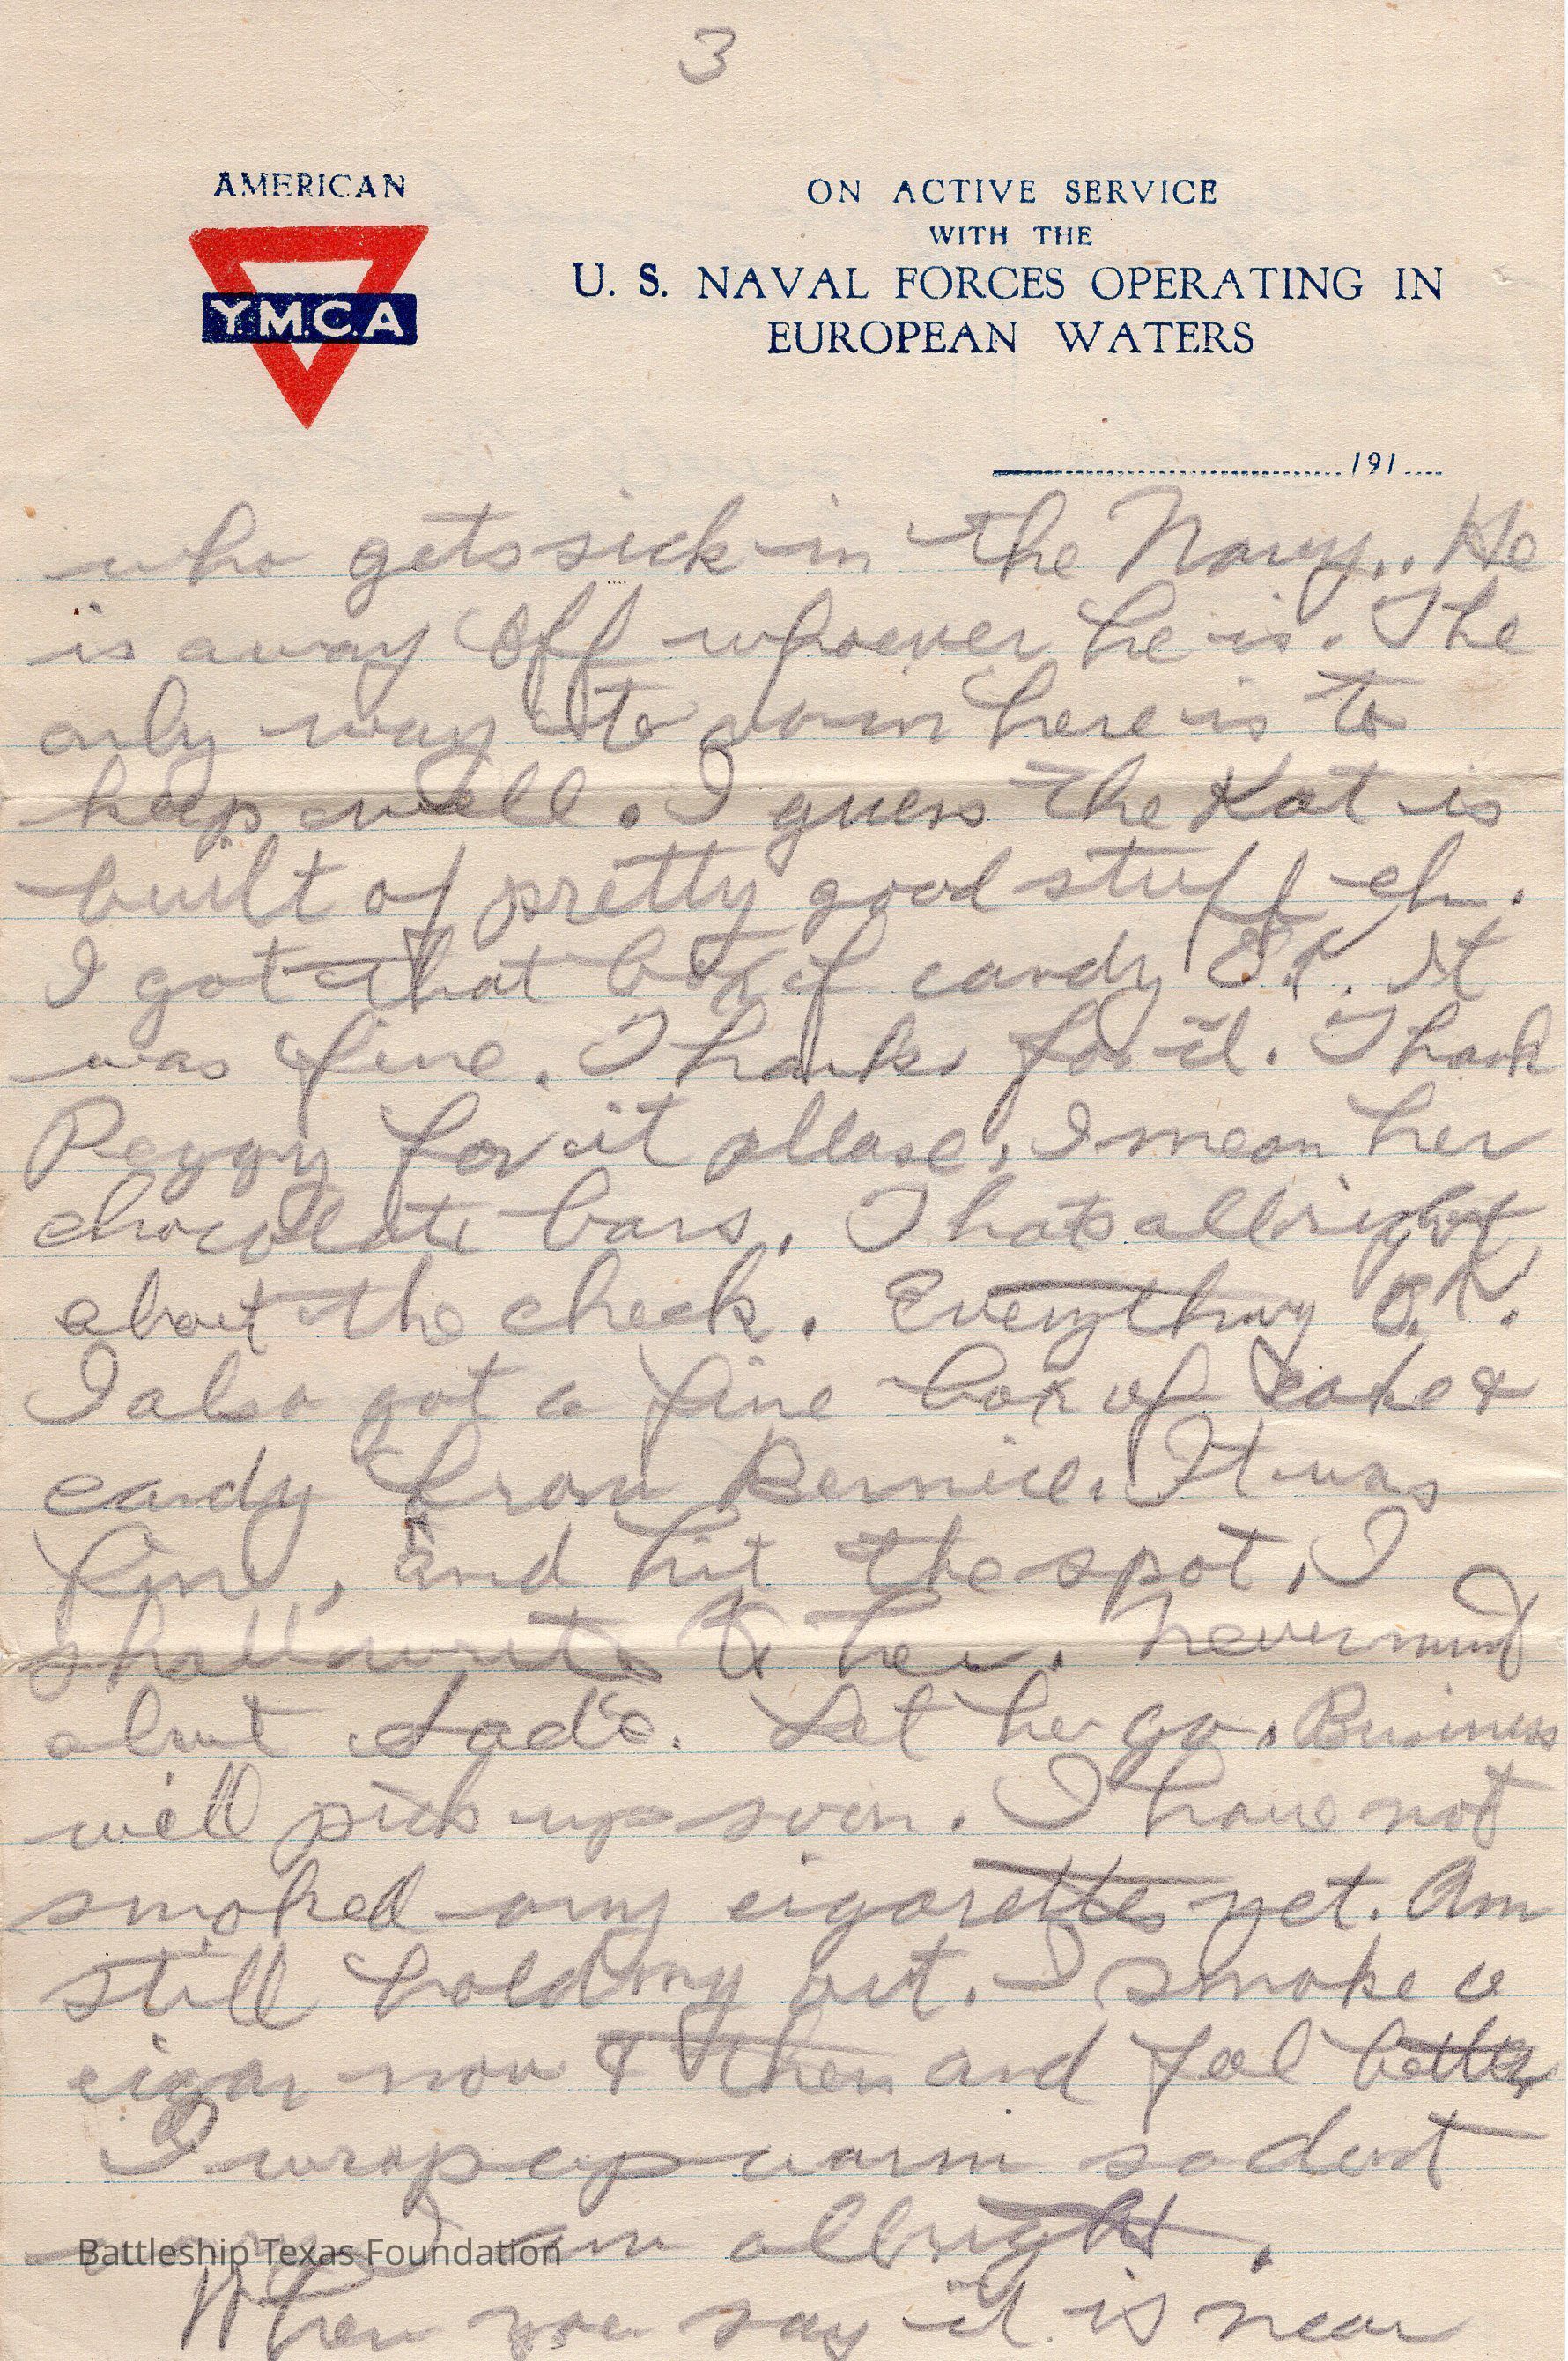 3
AMERICAN
YMCA
ON ACTIVE SERVICE
WITH THE
U. S. NAVAL FORCES OPERATING IN
EUROPEAN WATERS
191
who gets sick in the Navy.. He
is away off whoever he is. The
only way to win here is to
keep well. I guess the Kat is
built of pretty good stuff eh.
I got that box of candy O.K. It
was fine. Thanks for it. Thank
Peggy for it please, I mean her
chocolate bars. Thats allright
about the check. Everything O.K.
I also got a fine box of cake &
candy from Bernice. It was
fine, and hit the spot, I
shall write to her. Nevermind
about Sadie. Let her go. Business
will pick up soon. I have not
smoked any cigarettes yet. Am
still holding out. I smoke a
cigar now & then and feel better
I wrap up warm so dont
I am allright.
When you say it is near
Battleship Texas Foundation